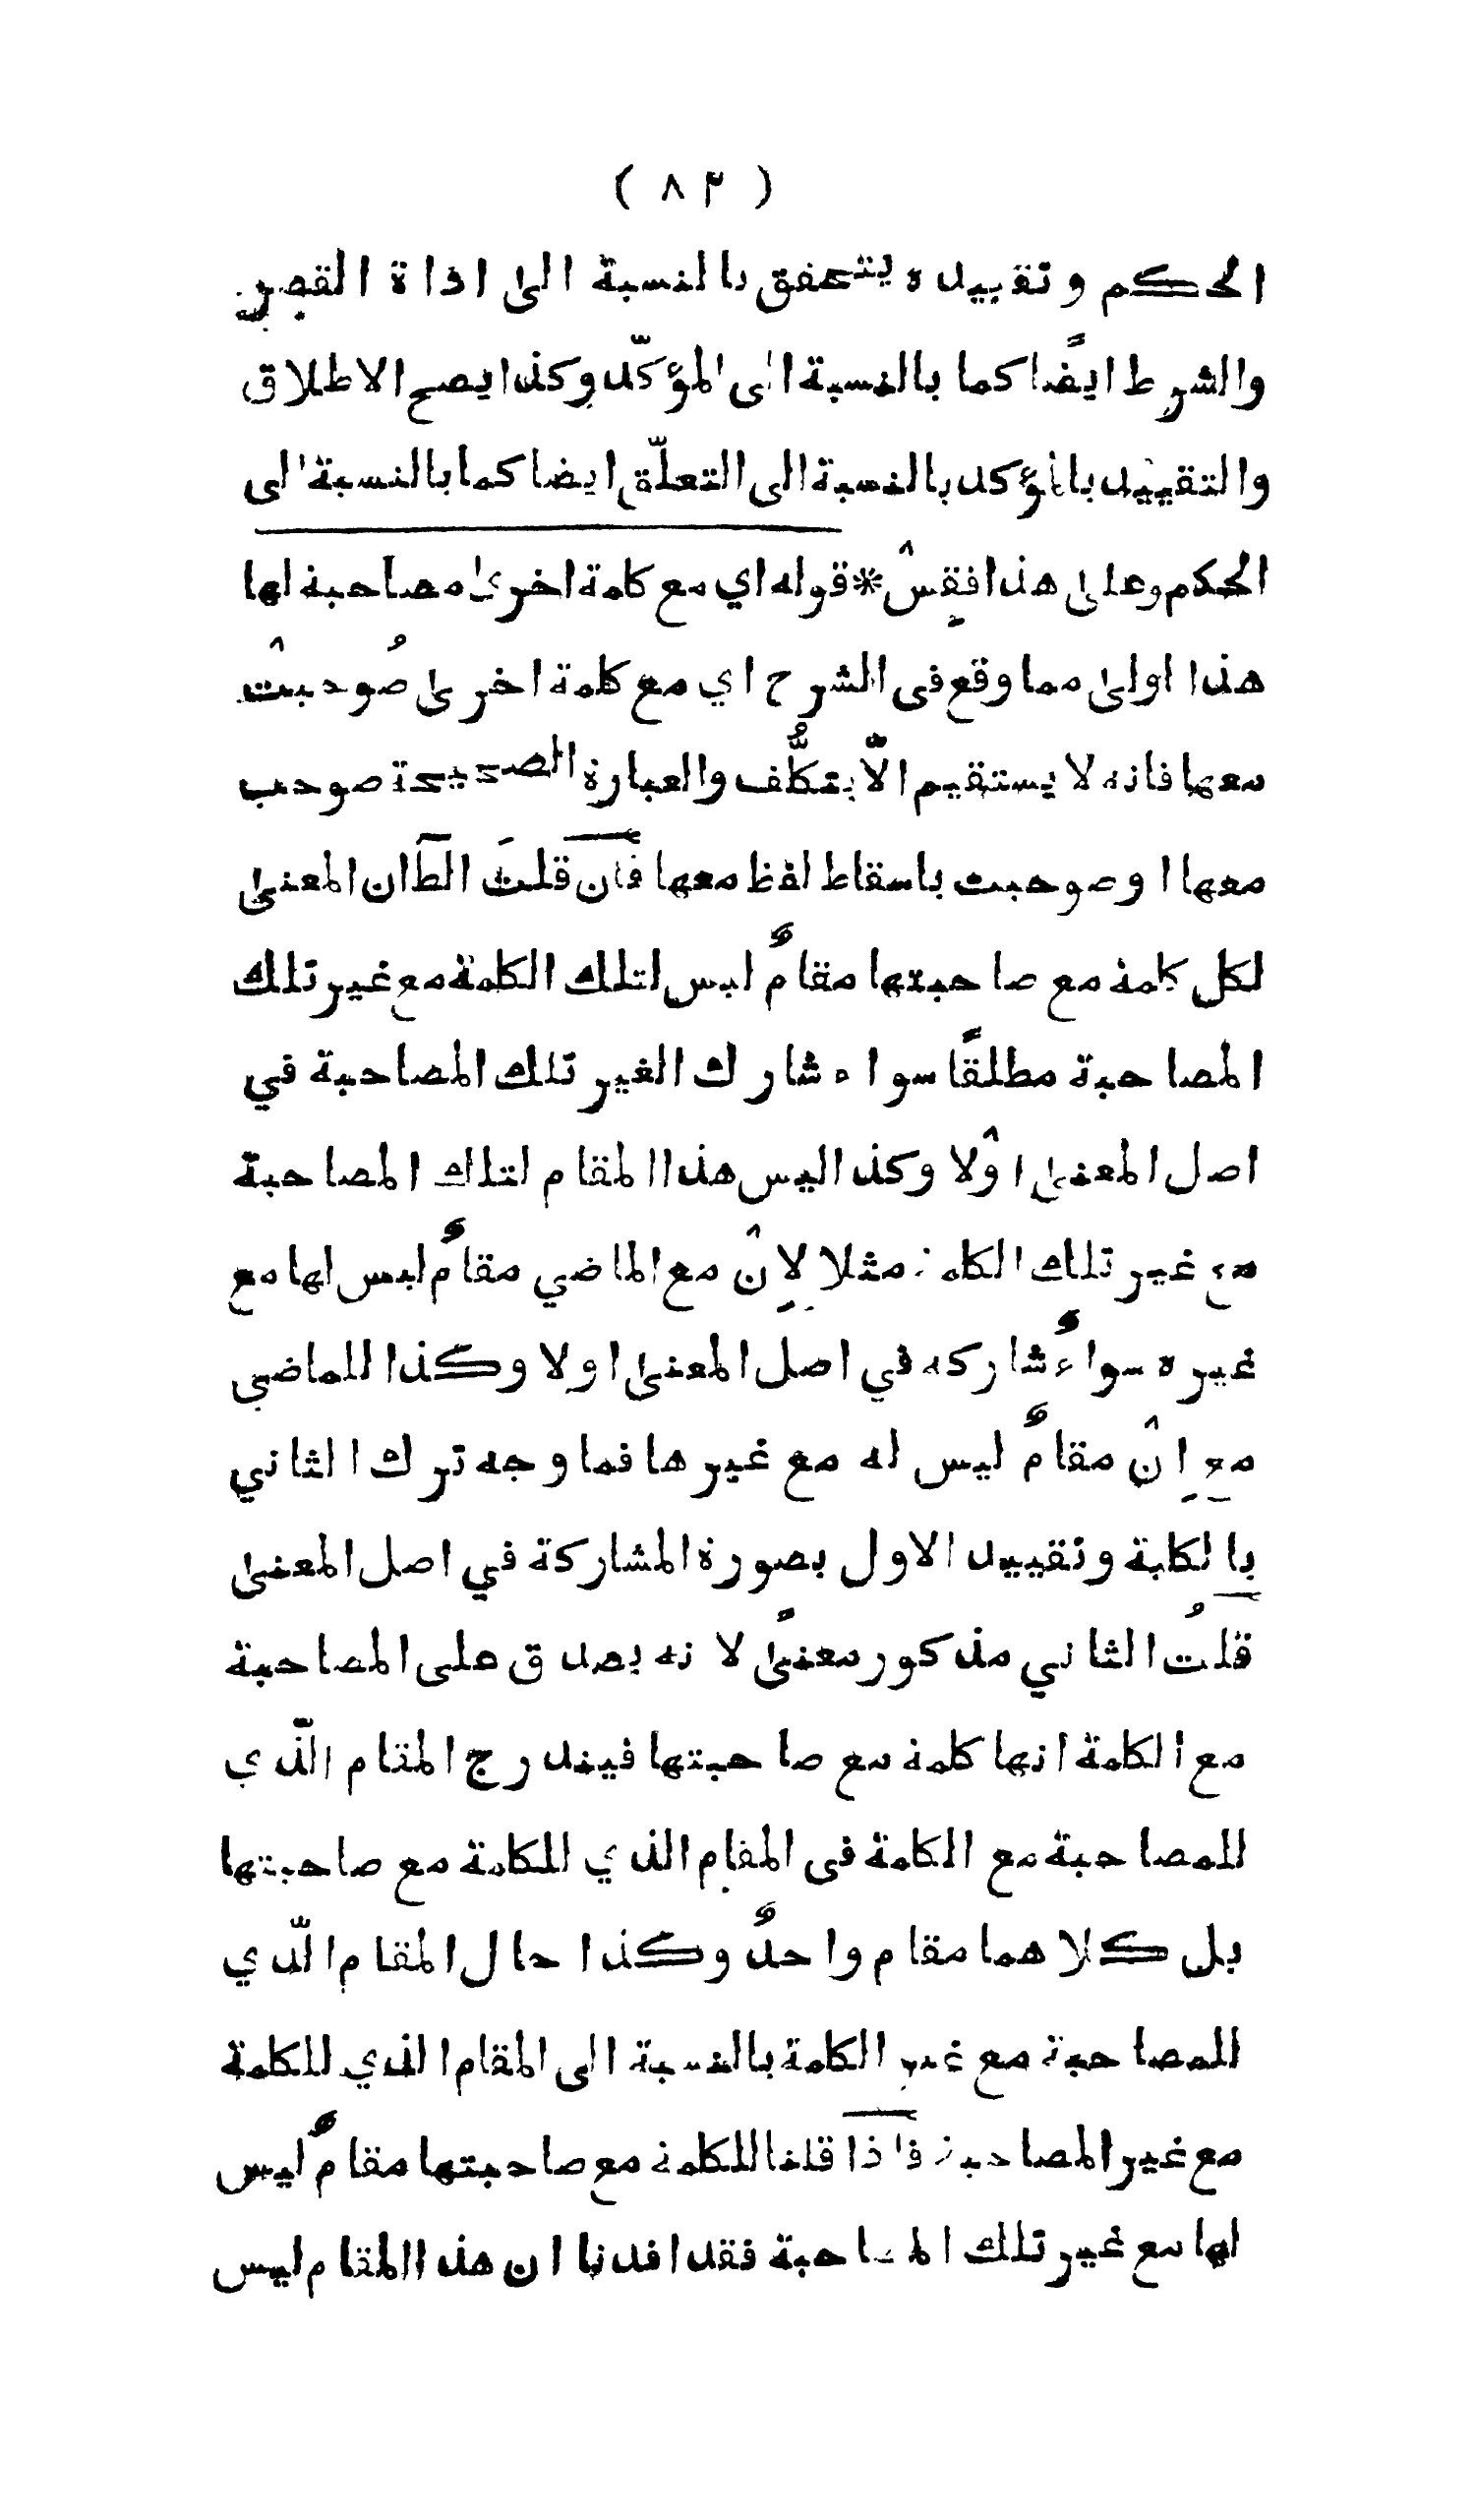 ( ٨٣ )
الحكم وتقييده يتحقق بالنسبة الى اداة القصر
والشرط ايضًا كما بالنسبة الى المؤكّد وكذا يصح الاطلاق
والتقييد بالمؤكد بالنسبة الى التعلّق ايضا كما بالنسبة الى
الحكم وعلى هذا فقِسْ * قوله اي مع كلمة اخرى مصاحبة لها
هذا اولى مما وقع فى الشرح اي مع كلمة اخرى صُوحبتْ
معها فانه لا يستقيم الّا بتكلُّف والعبارة الصحيحة صوحب
معها اوصوحبت باسقاط لفظ معها فان قلتَ الظّ ان المعنى
لكل كلمة مع صاحبتها مقامٌ ليس لتلك الكلمة مع غير تلك
المصاحبة مطلقًا سواء شارك الغير تلك المصاحبة في
اصل المعنى اوْلا وكذا ليس هذا المقام لتلك المصاحبة
مع غير تلك الكلمة مثلا لِاِنْ مع الماضي مقامٌ ليس لها مع
غيره سواءٌ شاركه في اصل المعنى اولا وكذا للماضي
مع اِنْ مقامٌ ليس له مع غيرها فما وجه ترك الثاني
بالكلية وتقييد الاول بصورة المشاركة في اصل المعنى
قلتُ الثاني مذكور معنىً لانه يصدق على المصاحبة
مع الكلمة انها كلمة مع صاحبتها فيندرج المقام الّذي
للمصاحبة مع الكلمة فى المقام الذي للكلمة مع صاحبتها
بل كلاهما مقام واحدٌ وكذا حال المقام الّذي
للمصاحبة مع غير الكلمة بالنسبة الى المقام الذي للكلمة
مع غير المصاحبة فاذا قلنا للكلمة مع صاحبتها مقامٌ ليس
لها مع غير تلك المصاحبة فقد افدنا ان هذا المقام ليس